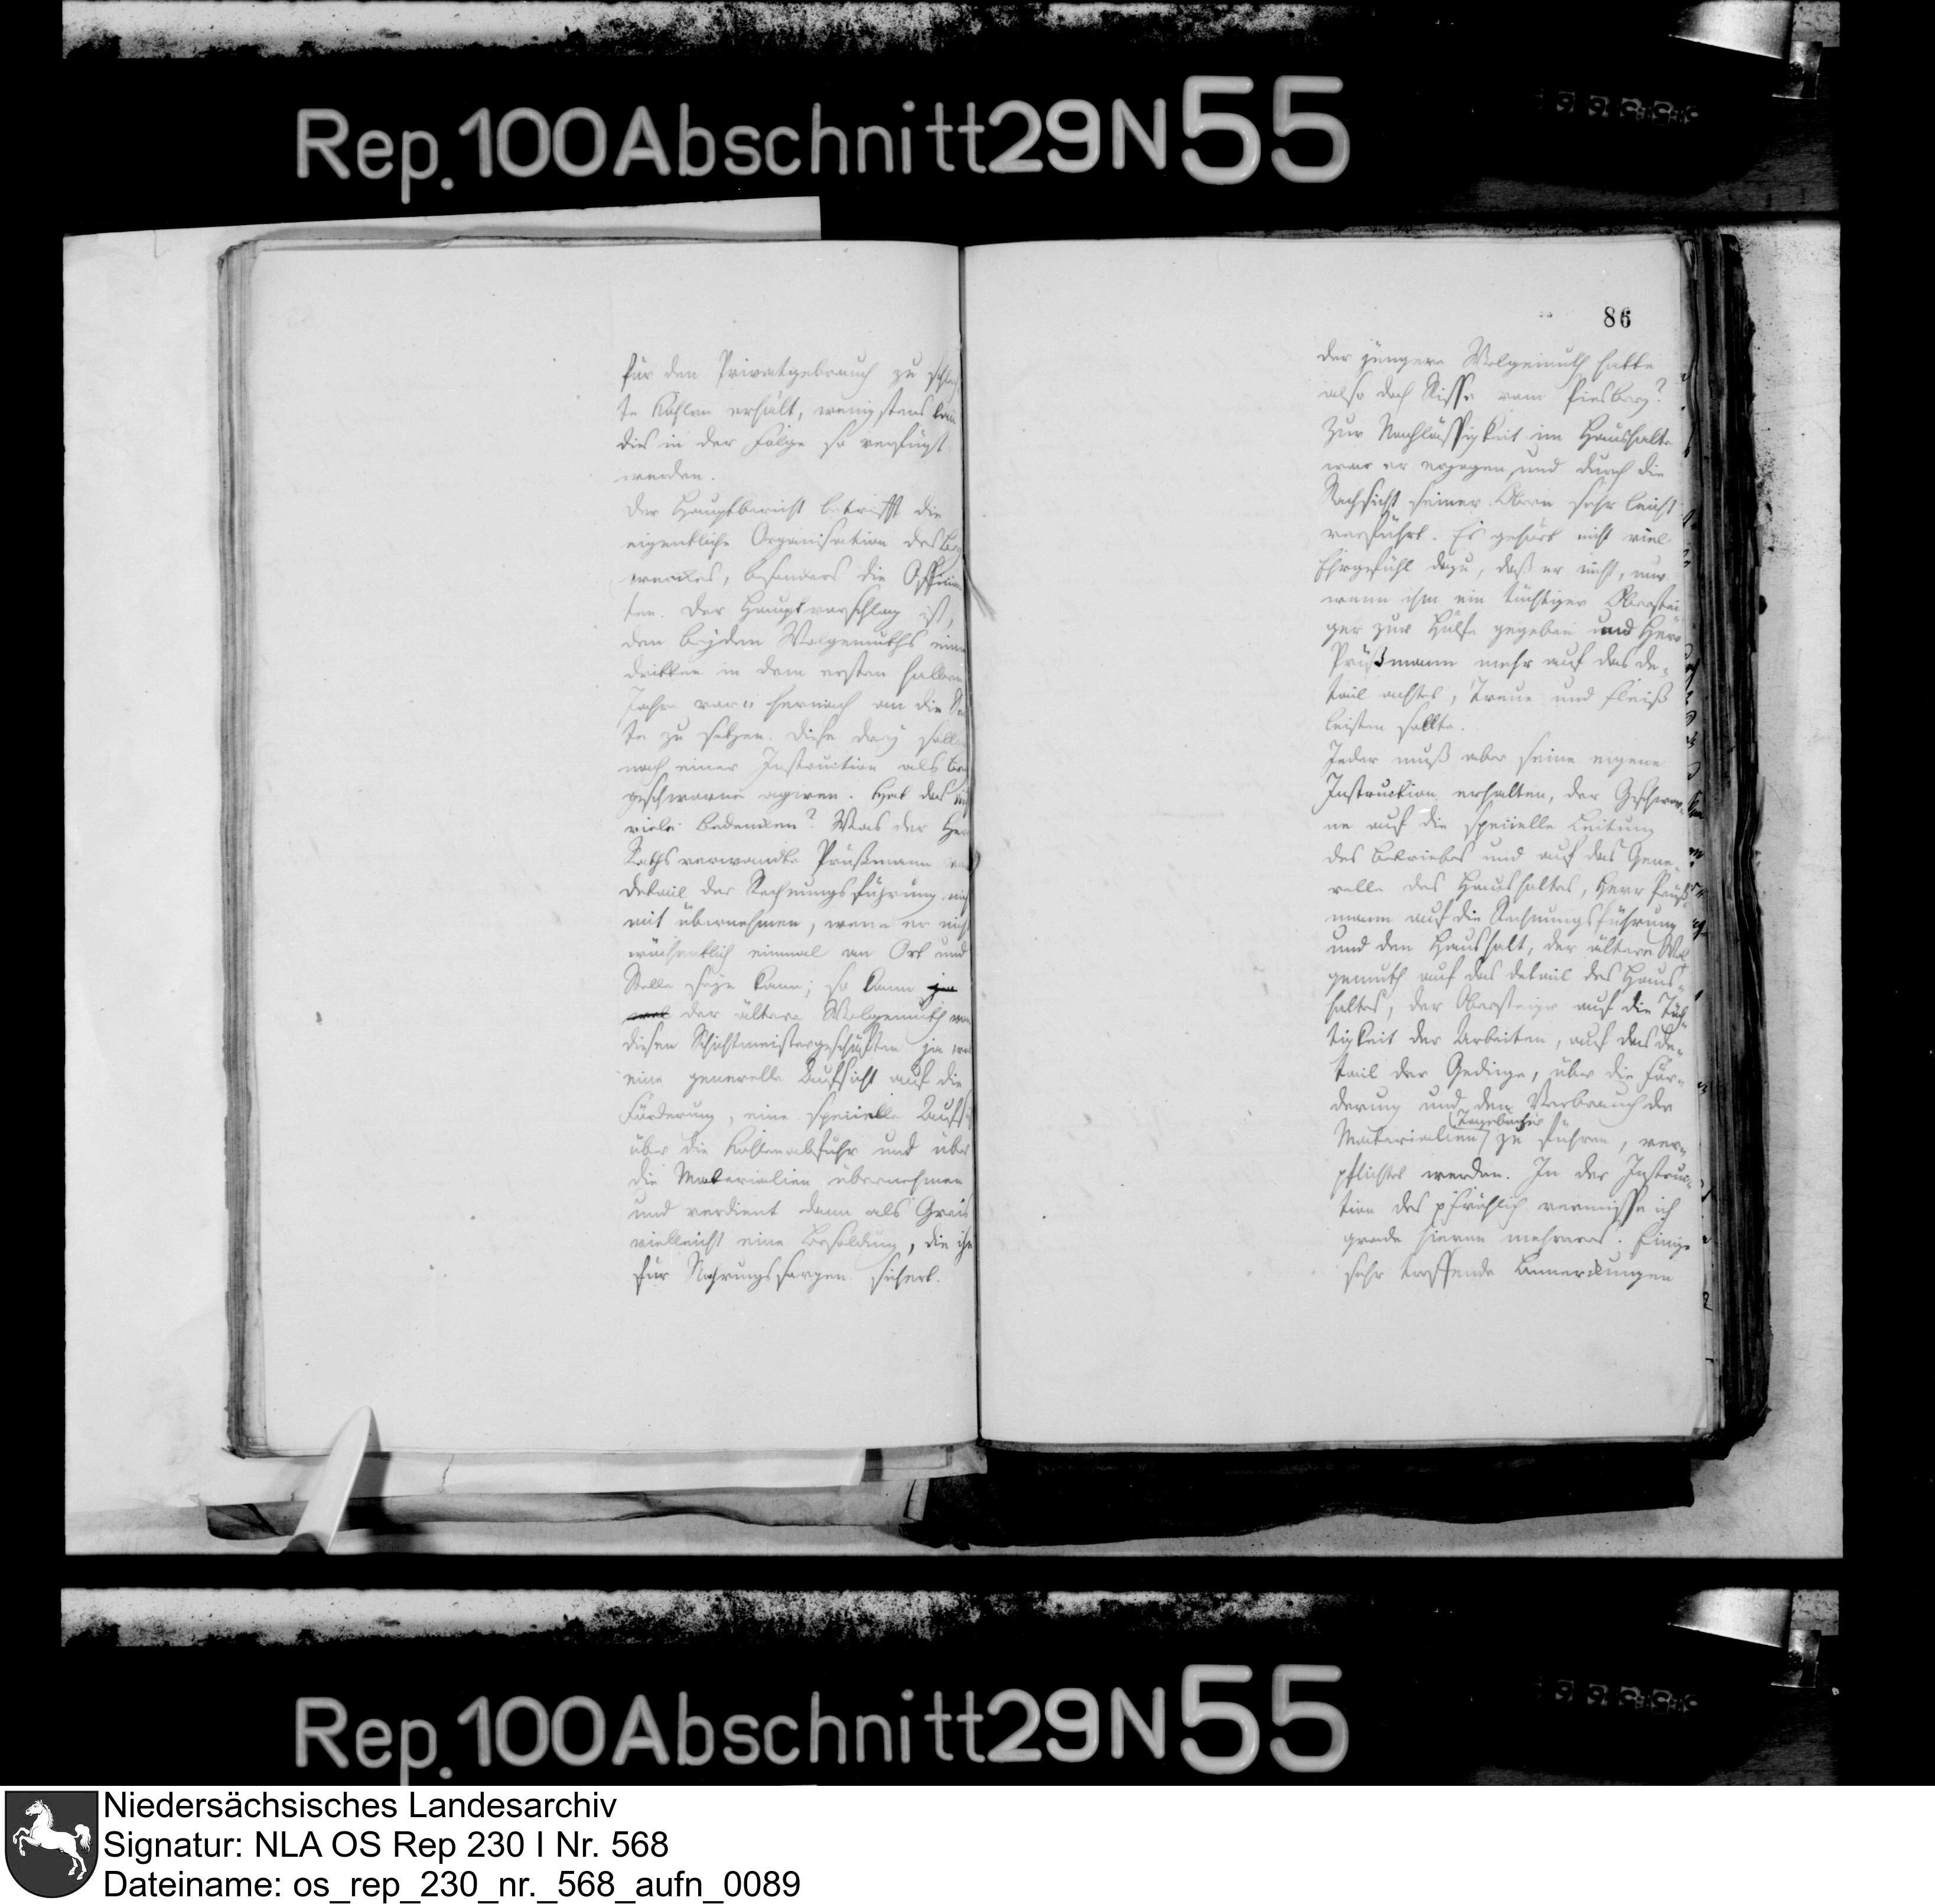 Rep. 100 Abschnitt 29 N 55
für den Privatgebrauch zu
te Kohlen erhält, wenigstens kan
dies in der Folge so verfügt
werden.
Der Hauptbericht betrifft die
eigentliche Organisation des Berg
werckes, besonders die Offician
ten. Der Hauptvorschlag ist,
den beyden Volgemuths einen
dritten in dem ersten halben
Jahre vor u hernach an die Sei
te zu setzen. Diese drey sollen
nach einer Instruction als Berg
geschworne agiren. Hat das nicht
viele Bedencken? Was der Herr
Rathsverwandte Prüßmann vom
Detail der Rechnungsführung nicht
mit übernehmen, wenn er nicht
wöchentlich einmal an Ort und
Stelle seyn kann; so kann ja
wol der ältere Volgemuth von
diesen Schichtmeistergeschäften ja wol
eine generelle Aufsicht auf die
Förderung, eine specielle Aufsi
über die Kohlenabfuhr und über
die Materialien übernehmen
und verdient dann als Greis
vielleicht eine Besoldung, die ihn
für Nahrungssorgen sichert.
86
Der jüngere Volgemuth hatte
also doch Risse vom Piesberg?
Zur Nachlässigkeit im Haushalte
war er erzogen, und durch die
Nachsicht seiner Obern sehr leicht
verführt. Es gehört nicht viel
Ehrgefühl dazu, daß er nicht, nur
wenn ihm ein tüchtiger Oberstei
ger zur Hülfe gegeben und Herr
Prüßmann mehr auf das De-
tail achtet, Treue und Fleiß
leisten sollte.
Jeder muß aber seine eigene
Instruction erhalten, der Geschwor-
ne auf die specielle Leitung
des Betriebes und auf das Gene-
relle des Haushaltes, Herr Prüß-
mann auf die Rechnungsführung
und den Haushalt, der ältere Vol
gemuth auf das Detail des Haus-
haltes, der Obersteiger auf die Tüch-
tigkeit der Arbeiten, auf das De-
tail der Gedinge, über die För-
derung und den Verbrauch der
Materialien (Tagebücher) zu führen, ver-
pflichtet werden. In der Instruc-
tion des p Fröhlich vermisse ich
grade hievon mehreres. Einige
sehr treffende Bemerckungen
Rep. 100 Abschnitt 29 N 55
Niedersächsisches Landesarchiv
Signatur: NLA OS Rep 230 I Nr. 568
Dateiname: os_rep_230_nr._568_aufn_0089